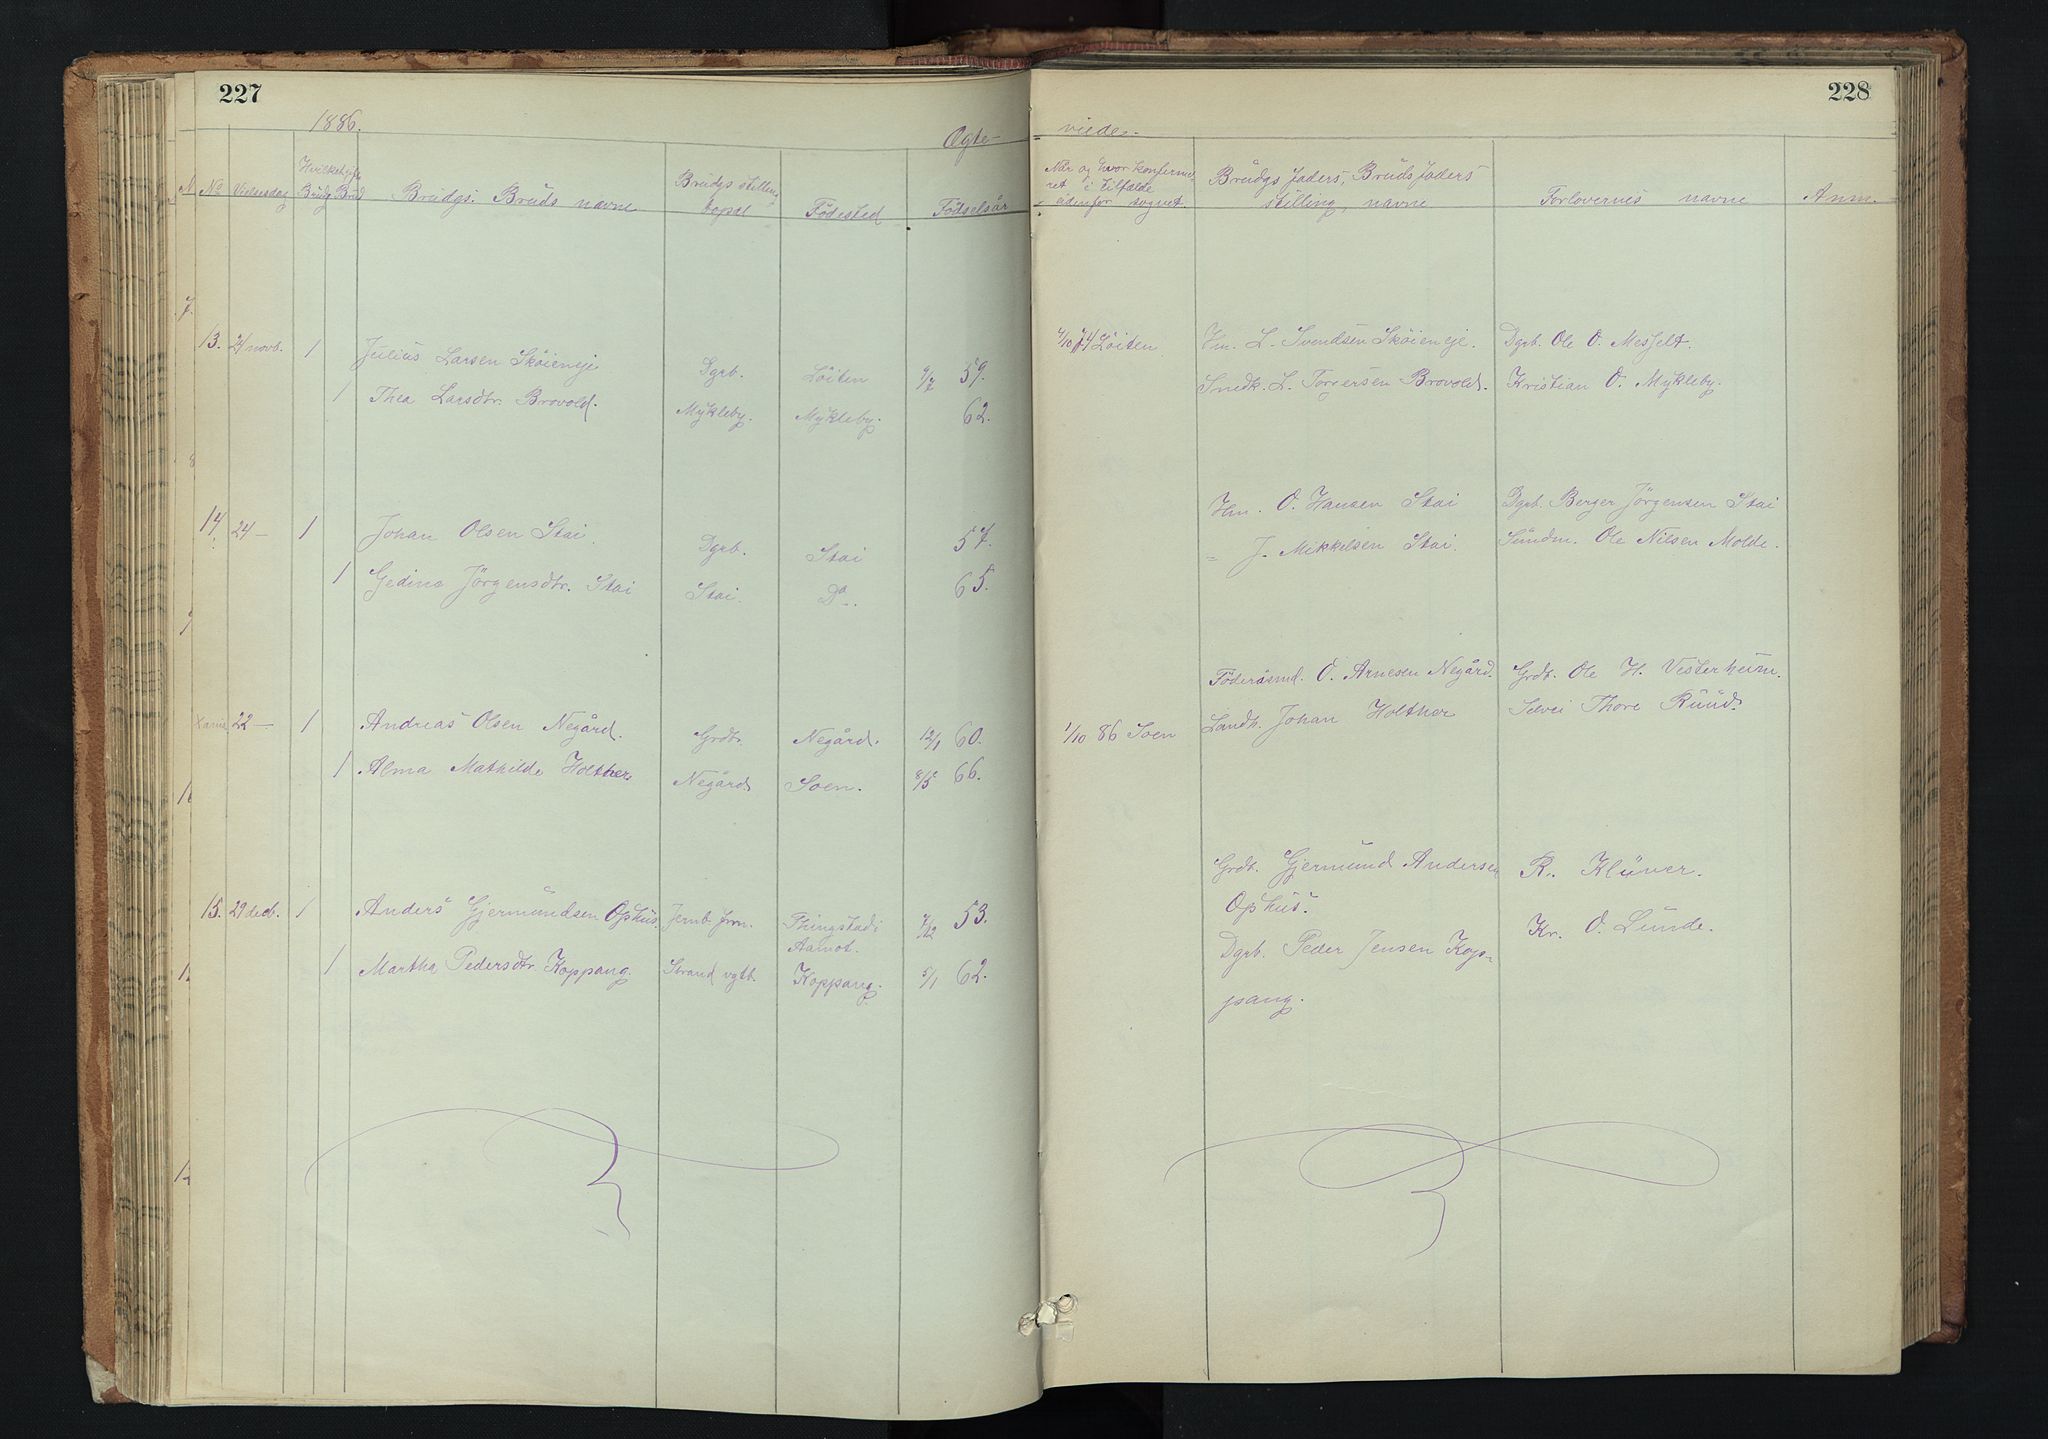 227
1886.
Ægte-
No
Vielsesdag
Hvilket
Brudg
Brud
Brudgs. Bruds navne
Brudgs stilling
bopæl
Fødested
Fødselsår
13. 24 novb. 1 Julius Larsen Skøieneje Dgrb. Løiten 9/7 59.
1 Thea Larsdtr. Brovold. Mykleby. Mykleby. 62.
14. 24 — 1 Johan Olsen Stai. Dgrb. Stai 57.
1 Gedine Jørgensdtr. Stai Stai. Do. 65.
22 — 1 Andreas Olsen Negård. Grdbr. Negård. 12/1 60.
1 Alma Mathilde Holther Negård 8/5 66.
15. 29 decb. 1 Anders Gjermundsen Ophus. Jernb. frm. Thingstad i 7/12 53.
Aamot.
1 Martha Pedersdtr. Koppang. Strand vgtb. Koppang. 5/1 62.
228
viede.
Når og hvor konfirme-
ret i tilfælde
udenfor sognet.
Brudgs faders, Bruds faders
stilling, navne
Forlovernes navne
Anm.
4/10 74 Løiten Hm. L. Svendsen Skøieneje. Dgrb. Ole O. Mesfelt.
Smdk. L. Torgersen Brovold. Kristian O. Mykleby.
Hm. O. Hansen Stai Dgrb. Berger Jørgensen Stai
„ J. Mikkelsen Stai. Sundm. Ole Nilsen Molde.
Føderåsmd. O. Arnesen Negård. Grdb. Ole H. Vesterheim.
1/10 86 Landh. Johan Holther Selvei Thore Ruud
Grdb. Gjermund Andersen R. Klüver.
Ophus.
Dgrb. Peder Jensen Kop- Kr. O. Lunde.
pang.